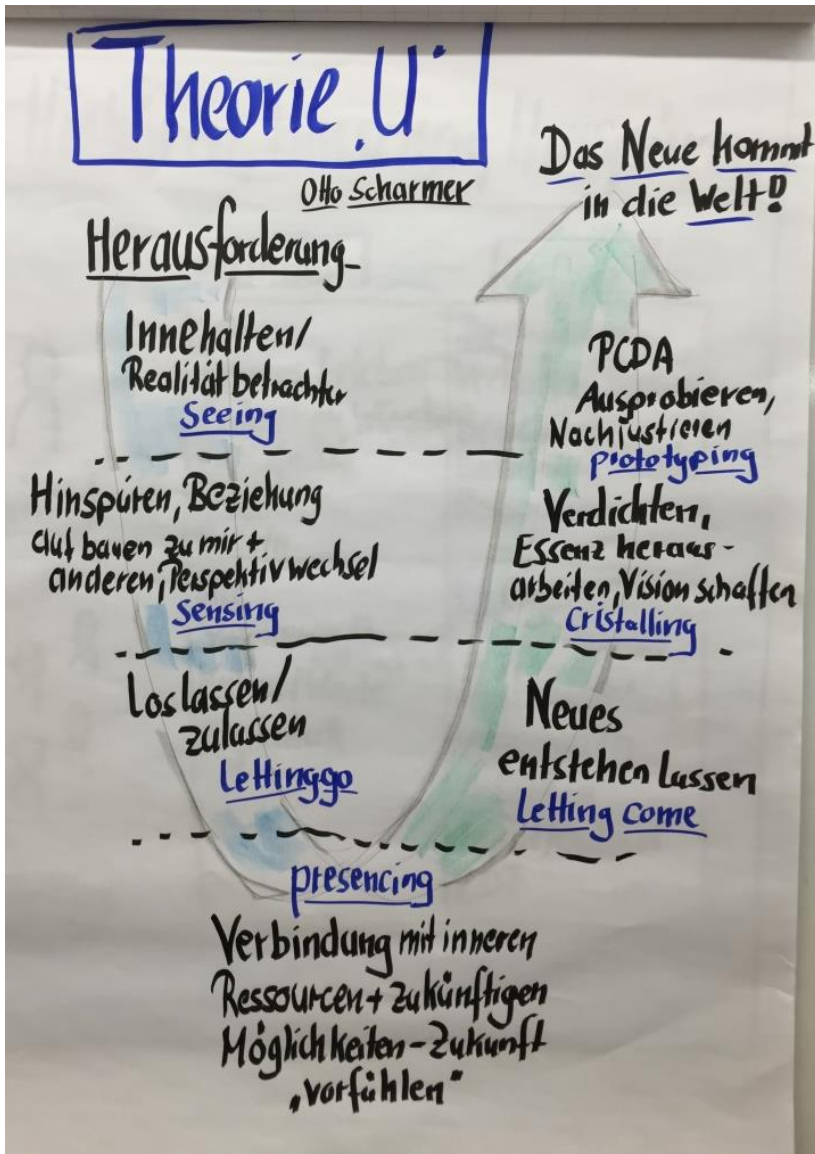 Theorie U
Otto Scharmer
Herausforderung
Innehalten/
Realität betrachten
Seeing
Hinspüren, Beziehung
aufbauen zu mir +
anderen, Perspektivwechsel
Sensing
Loslassen/
zulassen
Letting go
presencing
Verbindung mit inneren
Ressourcen + zukünftigen
Möglichkeiten - Zukunft
„vorfühlen“
Neues
entstehen lassen
Letting come
Verdichten,
Essenz heraus-
arbeiten, Vision schaffen
Cristalling
PCDA
Ausprobieren,
Nachjustieren
prototyping
Das Neue kommt
in die Welt!